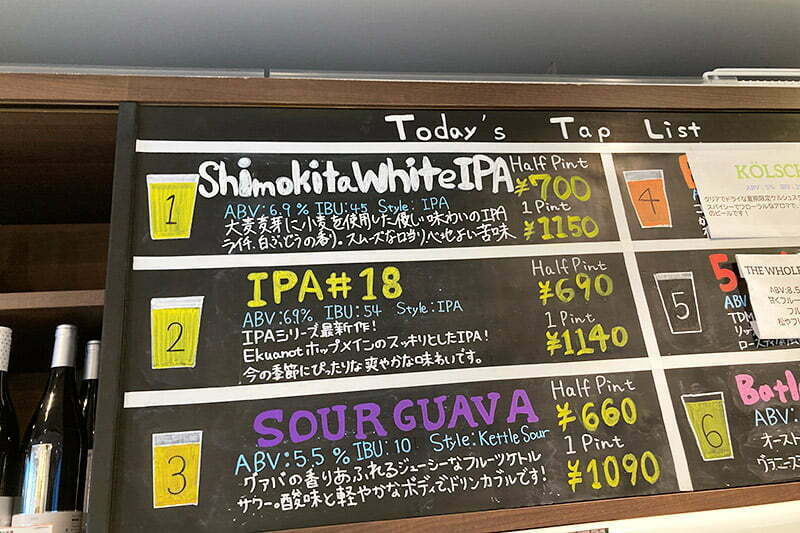 Today's Tap List
1
Shimokita White IPA
ABV:6.9% IBU:45 Style:IPA
大麦麦芽に小麦を使用した優しい味わいのIPA
ライチ、白ぶどうの香り。スムーズな口当り/心地よい苦味
Half Pint
¥700
1 Pint
¥1150
2
IPA#18
ABV:6.9% IBU:54 Style:IPA
IPAシリーズ最新作!
Ekuanotホップメインのスッキリとした IPA!
今の季節にぴったりな爽やかな味わいです。
Half Pint
¥690
1 Pint
¥1140
3
SOUR GUAVA
ABV:5.5% IBU:10 Style:Kettle Sour
グァバの香りあふれるジューシーなフルーツケトル
サワー。酸味と軽やかなボディで、ドリンカブルです!
Half Pint
¥660
1 Pint
¥1090
4
KÖLSCH
のビールです!
5
THE WHOLE
ABV:8.5
6
Batl
ABV:
オースト
ヴァニース